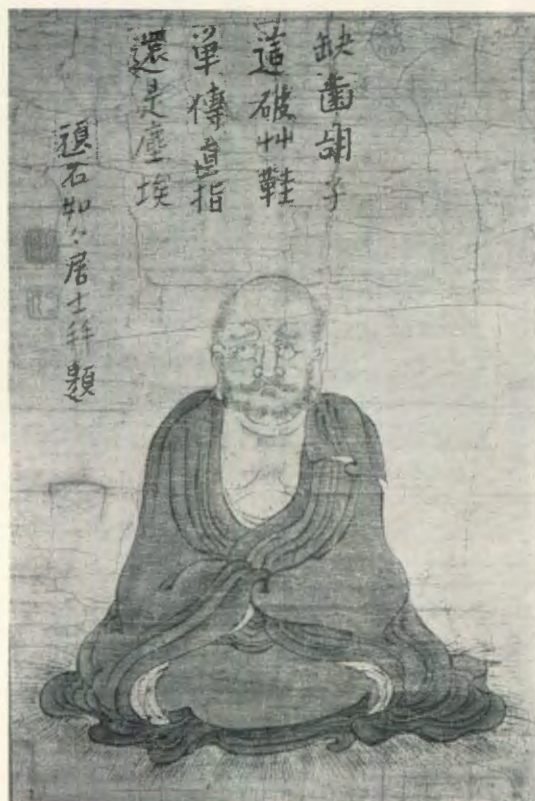 缺齒胡子
這破艸鞋
單傳直指
還是塵埃
頑石如如居士拜題